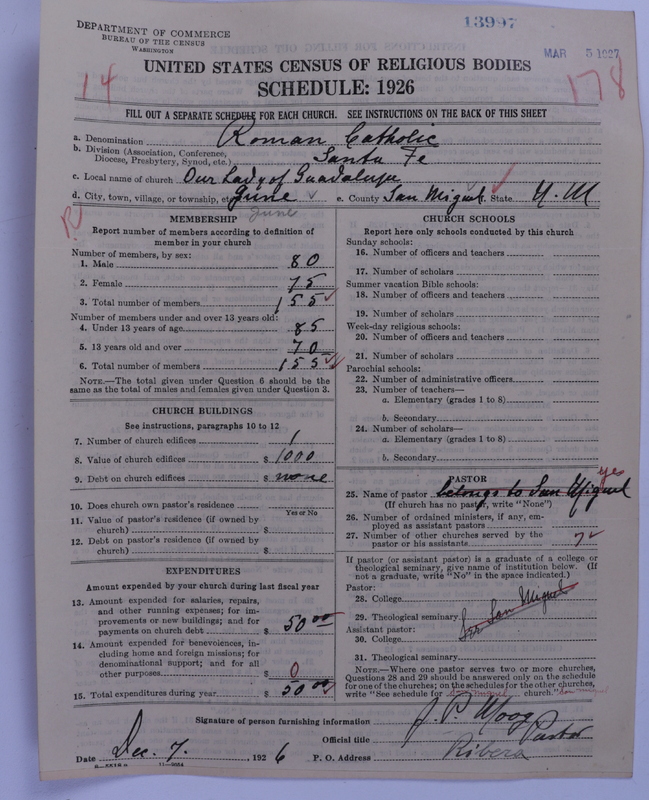 13997
DEPARTMENT OF COMMERCE
BUREAU OF THE CENSUS
WASHINGTON
MAR 5 1927
UNITED STATES CENSUS OF RELIGIOUS BODIES
SCHEDULE: 1926
14
178
FILL OUT A SEPARATE SCHEDULE FOR EACH CHURCH. SEE INSTRUCTIONS ON THE BACK OF THIS SHEET
a. Denomination Roman Catholic
b. Division (Association, Conference, Diocese, Presbytery, Synod, etc.) Santa Fe
c. Local name of church Our Lady of Guadalupe
d. City, town, village, or township, etc. June e. County San Miguel State N. M
June
R
MEMBERSHIP
Report number of members according to definition of
member in your church
Number of members, by sex:
1. Male 80
2. Female 75
3. Total number of members 155
Number of members under and over 13 years old:
4. Under 13 years of age 85
5. 13 years old and over 70
6. Total number of members 155
NOTE.—The total given under Question 6 should be the
same as the total of males and females given under Question 3.
CHURCH BUILDINGS
See instructions, paragraphs 10 to 12
7. Number of church edifices 1
8. Value of church edifices $ 1000
9. Debt on church edifices $ none
10. Does church own pastor's residence
Yes or No
11. Value of pastor's residence (if owned by
church) $
12. Debt on pastor's residence (if owned by
church) $
EXPENDITURES
Amount expended by your church during last fiscal year
13. Amount expended for salaries, repairs,
and other running expenses; for im-
provements or new buildings; and for
payments on church debt $ 50 00
14. Amount expended for benevolences, in-
cluding home and foreign missions; for
denominational support; and for all
other purposes $ 0
15. Total expenditures during year $ 50 00
CHURCH SCHOOLS
Report here only schools conducted by this church
Sunday schools:
16. Number of officers and teachers
17. Number of scholars
Summer vacation Bible schools:
18. Number of officers and teachers
19. Number of scholars
Week-day religious schools:
20. Number of officers and teachers
21. Number of scholars
Parochial schools:
22. Number of administrative officers
23. Number of teachers—
a. Elementary (grades 1 to 8)
b. Secondary
24. Number of scholars—
a. Elementary (grades 1 to 8)
b. Secondary
PASTOR
yes
25. Name of pastor belongs to San Miguel
(If church has no pastor, write "None")
26. Number of ordained ministers, if any, em-
ployed as assistant pastors
27. Number of other churches served by the
pastor or his assistants
If pastor (or assistant pastor) is a graduate of a college or
theological seminary, give name of institution below. (If
not a graduate, write "No" in the space indicated.)
Pastor:
28. College
29. Theological seminary San Miguel
Assistant pastor:
30. College
31. Theological seminary
NOTE.—Where one pastor serves two or more churches,
Questions 28 and 29 should be answered only on the schedule
for one of the churches; on the schedules for the other churches,
write "See schedule for church."
Signature of person furnishing information J. P. Moog
Official title Pastor
Date Dec. 7. 1926 P. O. Address Ribera